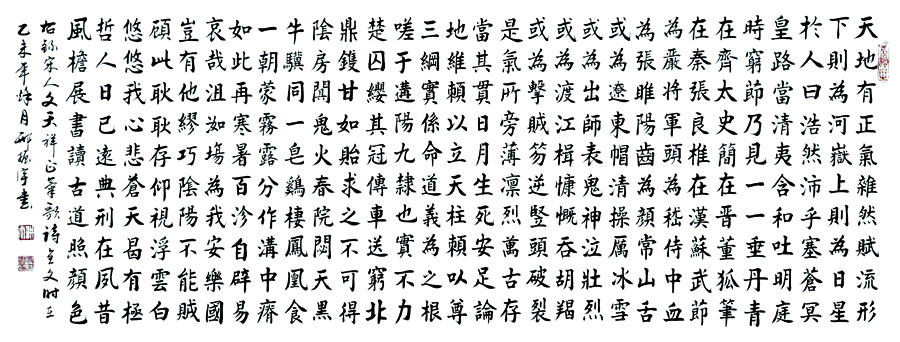 天地有正氣雜然賦流形
下則為河嶽上則為日星
於人曰浩然沛乎塞蒼冥
皇路當清夷含和吐明庭
時窮節乃見一一垂丹青
在齊太史簡在晉董狐筆
在秦張良椎在漢蘇武節
為嚴將軍頭為嵇侍中血
為張睢陽齒為顏常山舌
或為遼東帽清操厲冰雪
或為出師表鬼神泣壯烈
或為渡江楫慷慨吞胡羯
或為擊賊笏逆豎頭破裂
是氣所旁薄凛烈萬古存
當其貫日月生死安足論
地維賴以立天柱賴以尊
三綱實係命道義為之根
嗟于遘陽九隸也實不力
楚囚纓其冠傳車送窮北
鼎鑊甘如飴求之不可得
陰房闃鬼火春院閟天黑
牛驥同一皂鷄棲鳳凰食
一朝蒙霧露分作溝中瘠
如此再寒暑百沴自辟易
哀哉沮洳場為我安樂國
豈有他繆巧陰陽不能賊
顧此耿耿存仰視浮雲白
悠悠我心悲蒼天曷有極
哲人日已遠典刑在夙昔
風檐展書讀古道照顏色
右錄宋人文天祥正氣歌詩全文時在
乙未年月書